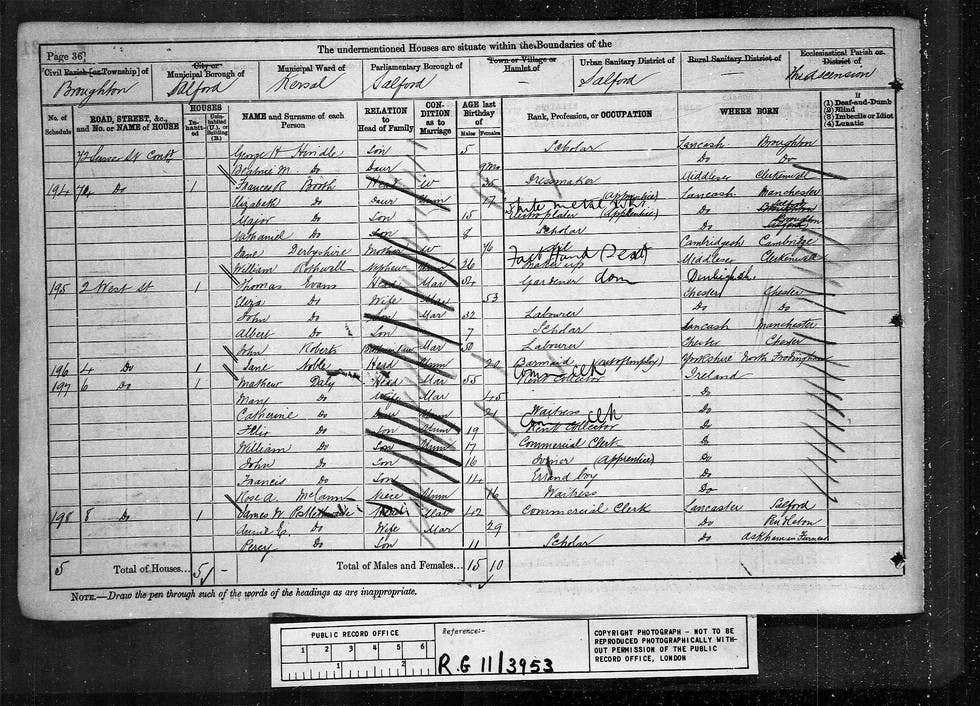 Page 36]
The undermentioned Houses are situate within the Boundaries of the
Civil Parish [or Township] of
City or Municipal Borough of
Municipal Ward of
Parliamentary Borough of
Town or Village or Hamlet of
Urban Sanitary District of
Rural Sanitary District of
Ecclesiastical Parish or District of
Broughton Salford Kersal Salford Salford The Ascension
No. of Schedule
ROAD, STREET, &c., and No. or NAME of HOUSE
HOUSES
Inhabited
Uninhabited (U.), or Building (B.)
NAME and Surname of each Person
RELATION to Head of Family
CONDITION as to Marriage
AGE last Birthday of
Males Females
Rank, Profession, or OCCUPATION
WHERE BORN
If
(1) Deaf-and-Dumb
(2) Blind
(3) Imbecile or Idiot
(4) Lunatic
George H Hindle Son 5 Scholar Lancash Broughton
Beatrice M Do Daur 9mo Do Do
194 Do 1 Frances R Booth Head W Dressmaker Middlesex Clerkenwell
Elizabeth Do Daur Unm 17 (apprentice) Lancash Manchester
Major Do Son 15 Electro plater (Apprentice) Do
Nathaniel Do Son 8 Scholar Do
Jane Derbyshire Mother W 76 Cambridgesh Cambridge
William Rothwell Nephew Unm 26 Middlesex Clerkenwell
195 2 West St 1 Thomas Evans Head Mar 54 Gardener dom Denbighsh
Eliza Do Wife Mar 53 Chester Chester
John Do Son Mar 32 Labourer Do Do
Albert Do Son 7 Scholar Lancash Manchester
John Roberts Mar 50 Labourer Chester Chester
196 4 Do 1 Jane Noble Head Unm 20 Barmaid (out of employ) Yorkshire North
197 6 Do 1 Mathew Daly Head Mar 55 Rent Collector Ireland
Mary Do Wife Mar 45 Do
Catherine Do Daur Unm 21 Waitress Do
Do Son Unm 19 Rent Collector Do
William Do Son Unm 17 Commercial Clerk Do
John Do Son 16 Joiner (Apprentice) Do
Francis Do Son 14 Errand boy Do
Rose A. McCann Niece Unm 16 Waitress Do
198 8 Do 1 James W. Head Mar 42 Commercial Clerk Lancaster Salford
Annie E. Do Wife Mar 29 Do Pendleton
Percy Do Son 11 Scholar Do Askham in Furness
5 Total of Houses... 5 - Total of Males and Females... 15 10
NOTE.—Draw the pen through such of the words of the headings as are inappropriate.
PUBLIC RECORD OFFICE
1 2 3 4 5 6
1 2
Reference:-
RG 11/3953
COPYRIGHT PHOTOGRAPH – NOT TO BE
REPRODUCED PHOTOGRAPHICALLY WITH-
OUT PERMISSION OF THE PUBLIC
RECORD OFFICE, LONDON